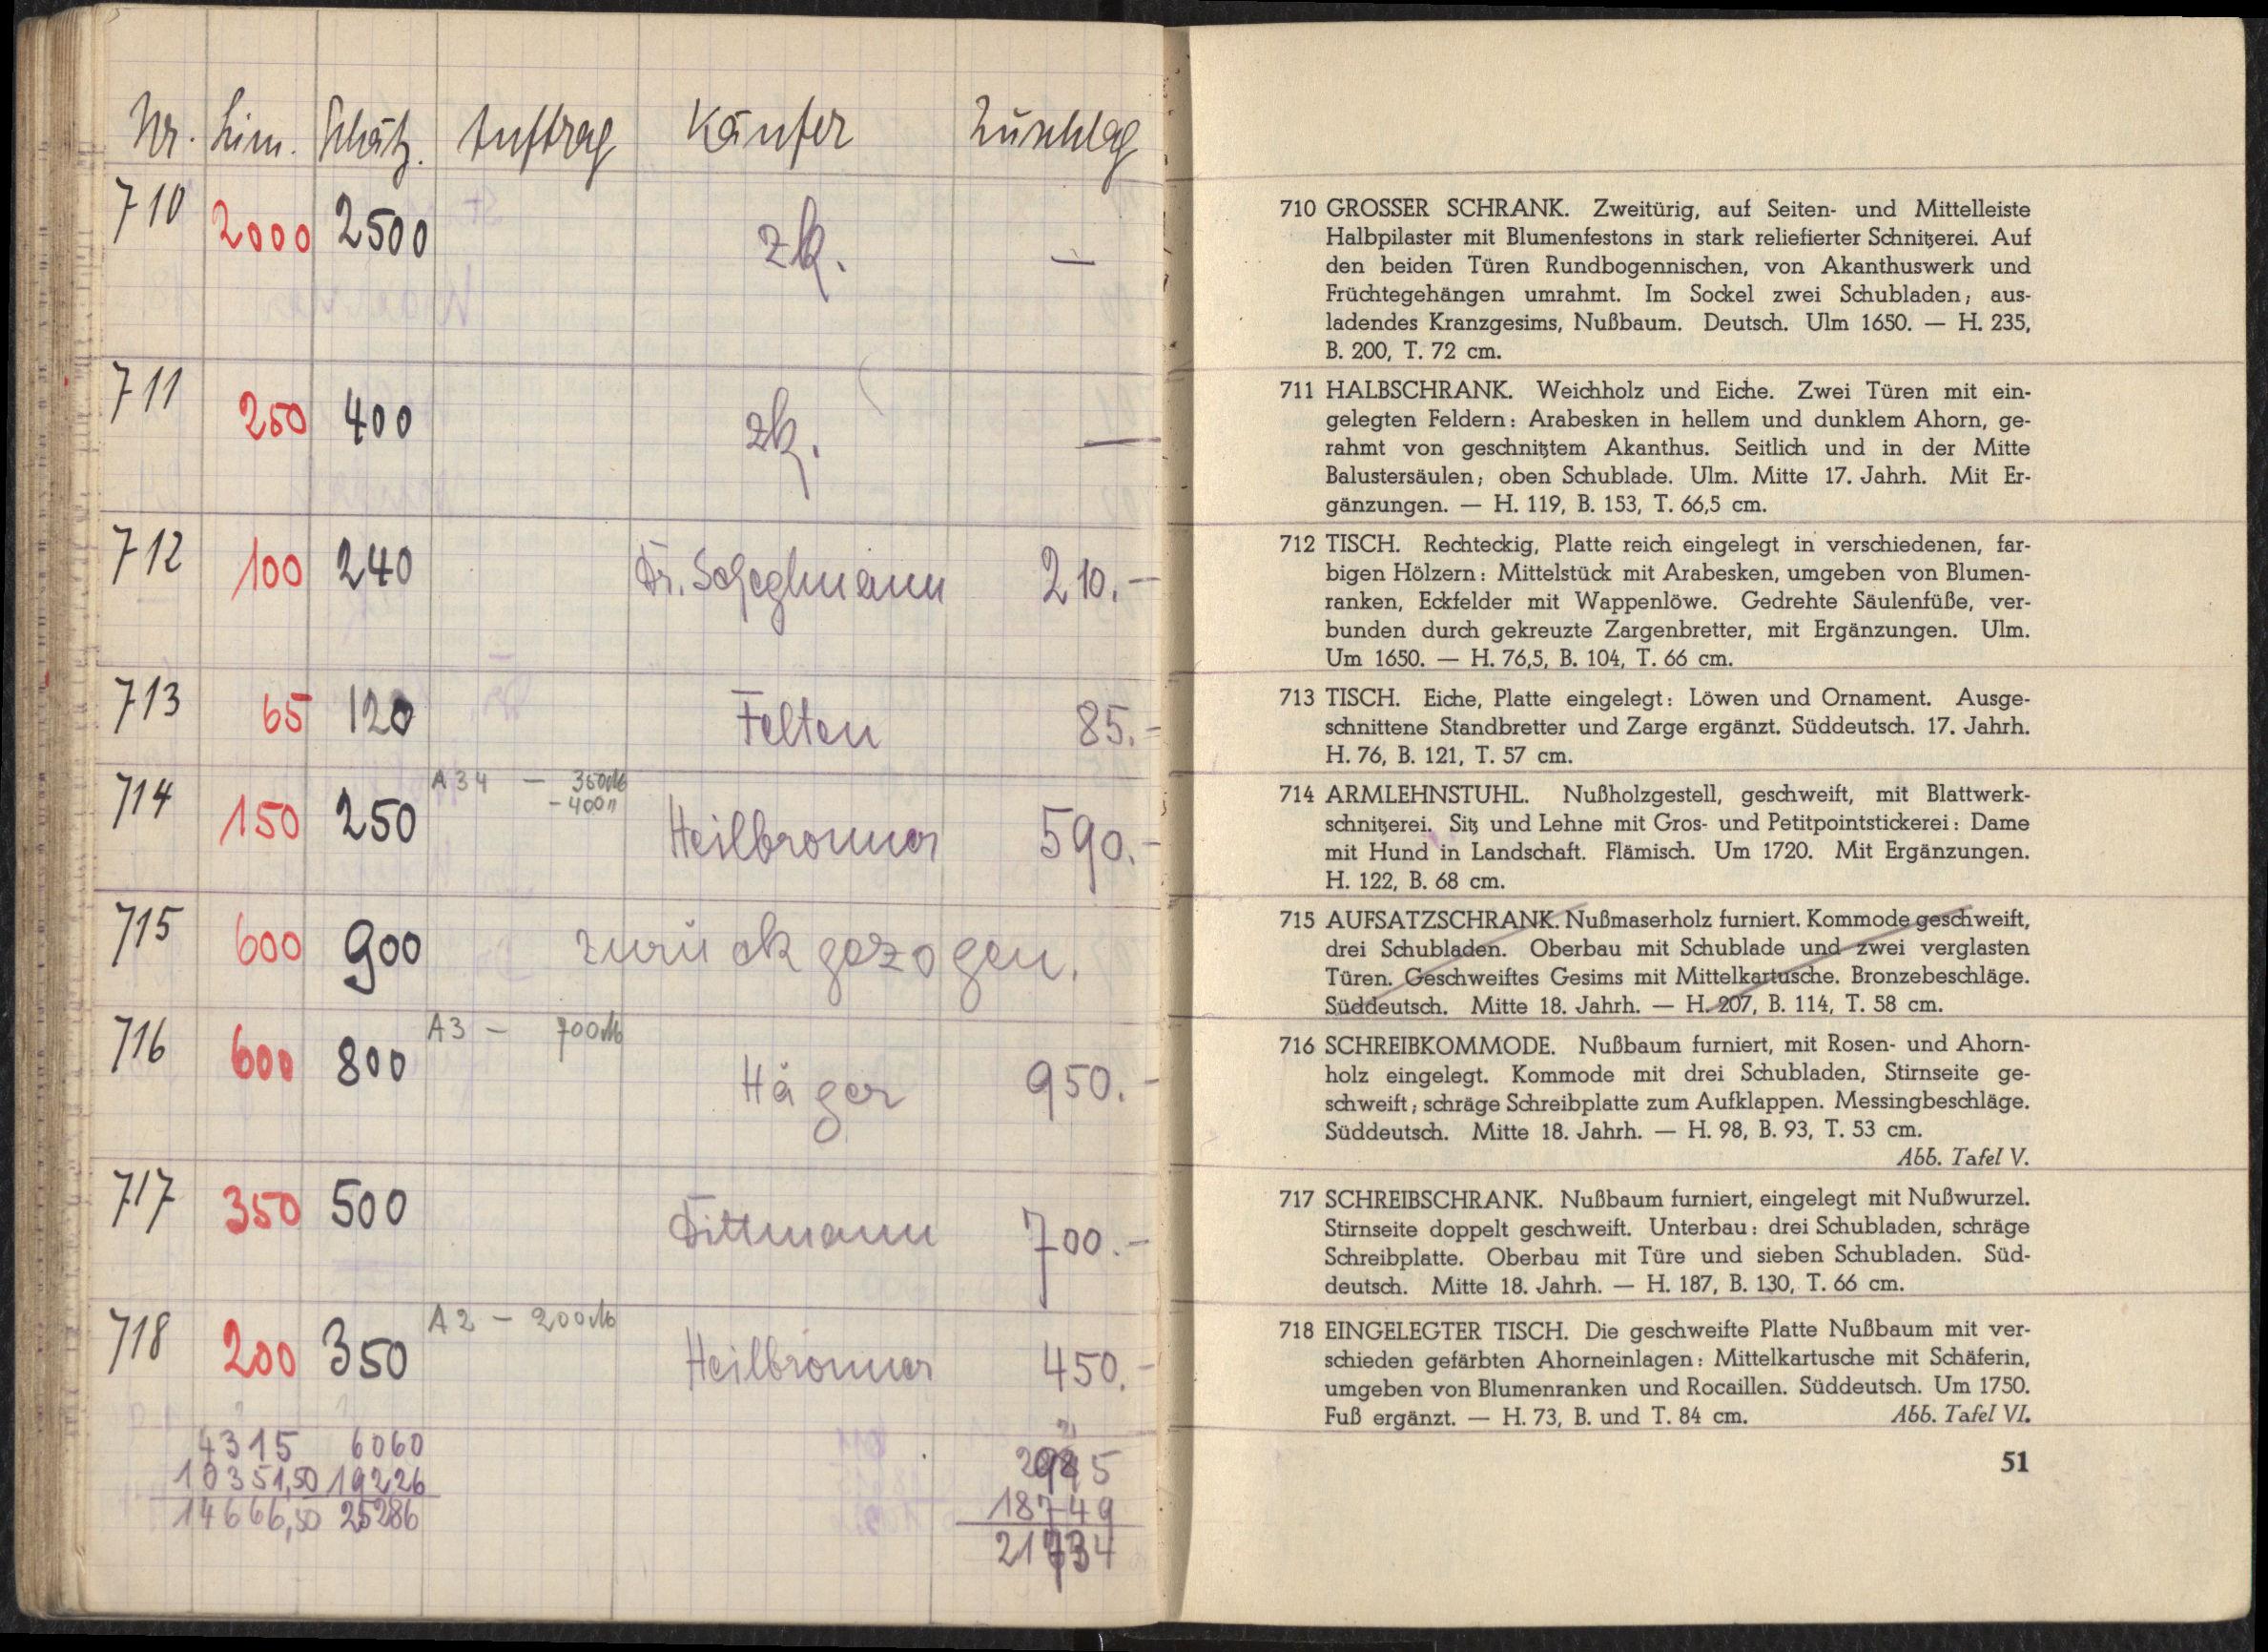 Nr. Lim. Schätz. Auftrag Käufer Zuschlag
710 2000 2500 zk. —
711 250 400 zk. —
712 100 240 Dr. Scheglmann 210.—
713 65 120 Felten 85.—
A34 — 350 M
— 400 "
714 150 250 Heilbronner 590.—
715 600 900 zurückgezogen.
A3 — 700 M
716 600 800 Häger 950.—
717 350 500 Dittmann 700.—
A2 — 200 M
718 200 350 Heilbronner 450.—
4315 6060
10351,50 19226 18749
14666,50 25286 21734
710 GROSSER SCHRANK. Zweitürig, auf Seiten- und Mittelleiste
Halbpilaster mit Blumenfestons in stark reliefierter Schnitzerei. Auf
den beiden Türen Rundbogennischen, von Akanthuswerk und
Früchtegehängen umrahmt. Im Sockel zwei Schubladen; aus-
ladendes Kranzgesims, Nußbaum. Deutsch. Ulm 1650. — H. 235,
B. 200, T. 72 cm.
711 HALBSCHRANK. Weichholz und Eiche. Zwei Türen mit ein-
gelegten Feldern: Arabesken in hellem und dunklem Ahorn, ge-
rahmt von geschnitztem Akanthus. Seitlich und in der Mitte
Balustersäulen; oben Schublade. Ulm. Mitte 17. Jahrh. Mit Er-
gänzungen. — H. 119, B. 153, T. 66,5 cm.
712 TISCH. Rechteckig, Platte reich eingelegt in verschiedenen, far-
bigen Hölzern: Mittelstück mit Arabesken, umgeben von Blumen-
ranken, Eckfelder mit Wappenlöwe. Gedrehte Säulenfüße, ver-
bunden durch gekreuzte Zargenbretter, mit Ergänzungen. Ulm.
Um 1650. — H. 76,5, B. 104, T. 66 cm.
713 TISCH. Eiche, Platte eingelegt: Löwen und Ornament. Ausge-
schnittene Standbretter und Zarge ergänzt. Süddeutsch. 17. Jahrh.
H. 76, B. 121, T. 57 cm.
714 ARMLEHNSTUHL. Nußholzgestell, geschweift, mit Blattwerk-
schnitzerei. Sitz und Lehne mit Gros- und Petitpointstickerei: Dame
mit Hund in Landschaft. Flämisch. Um 1720. Mit Ergänzungen.
H. 122, B. 68 cm.
715 AUFSATZSCHRANK. Nußmaserholz furniert. Kommode geschweift,
drei Schubladen. Oberbau mit Schublade und zwei verglasten
Türen. Geschweiftes Gesims mit Mittelkartusche. Bronzebeschläge.
Süddeutsch. Mitte 18. Jahrh. — H. 207, B. 114, T. 58 cm.
716 SCHREIBKOMMODE. Nußbaum furniert, mit Rosen- und Ahorn-
holz eingelegt. Kommode mit drei Schubladen, Stirnseite ge-
schweift; schräge Schreibplatte zum Aufklappen. Messingbeschläge.
Süddeutsch. Mitte 18. Jahrh. — H. 98, B. 93, T. 53 cm.
Abb. Tafel V.
717 SCHREIBSCHRANK. Nußbaum furniert, eingelegt mit Nußwurzel.
Stirnseite doppelt geschweift. Unterbau: drei Schubladen, schräge
Schreibplatte. Oberbau mit Türe und sieben Schubladen. Süd-
deutsch. Mitte 18. Jahrh. — H. 187, B. 130, T. 66 cm.
718 EINGELEGTER TISCH. Die geschweifte Platte Nußbaum mit ver-
schieden gefärbten Ahorneinlagen: Mittelkartusche mit Schäferin,
umgeben von Blumenranken und Rocaillen. Süddeutsch. Um 1750.
Fuß ergänzt. — H. 73, B. und T. 84 cm. Abb. Tafel VI.
51